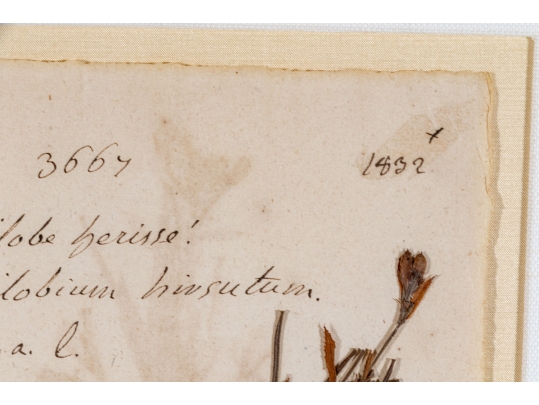 3667
1832 x
ilobe herissé!
ilobium hirsutum.
a. l.